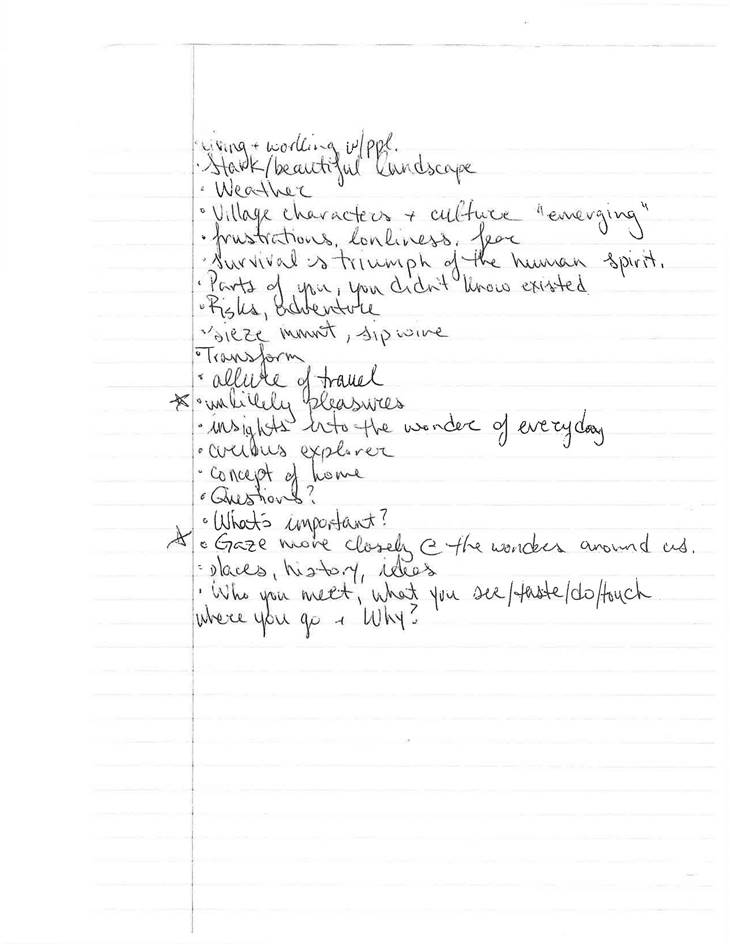 • Living + working w/ppl.
• Stark/beautiful landscape
• Weather
• Village characters + culture "emerging"
• frustrations, lonliness, fear
• Survival is triumph of the human spirit.
• Parts of you, you didn't know existed
• Risks, adventure
• sieze mmnt, sip wine
• Transform
• allure of travel
☆ • unlikely pleasures
• insights into the wonder of everyday
• curious explorer
• concept of home
• Questions?
• What's important?
☆ • Gaze more closely @ the wonders around us.
• places, history, ideas
• Who you meet, what you see/taste/do/touch
where you go + Why?